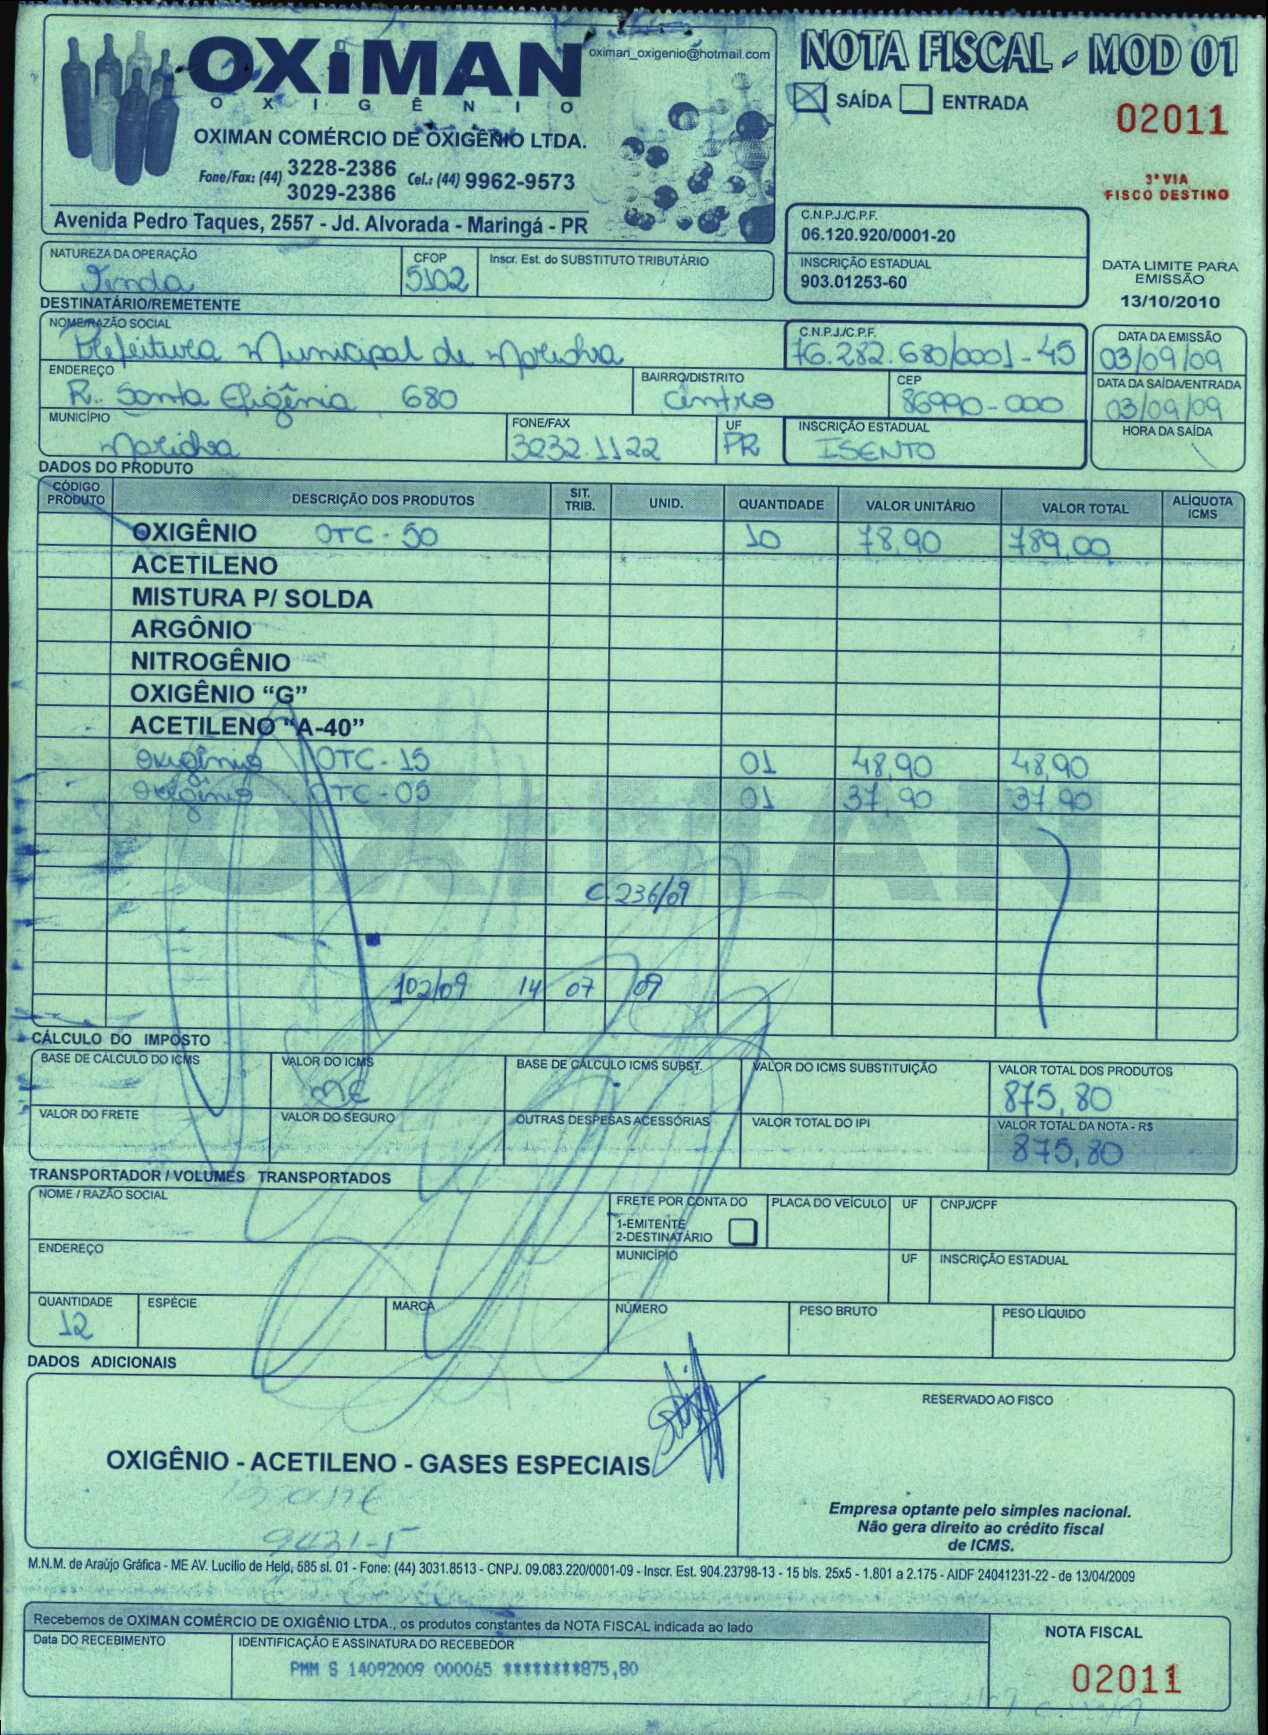 OXIMAN
OXIGÊNIO
oximan_oxigenio@hotmail.com
OXIMAN COMÉRCIO DE OXIGÊNIO LTDA.
Fone/Fax: (44) 3228-2386
3029-2386
Cel.: (44) 9962-9573
Avenida Pedro Taques, 2557 - Jd. Alvorada - Maringá - PR
NOTA FISCAL - MOD 01
SAÍDA ENTRADA
02011
3ª VIA
FISCO DESTINO
C.N.P.J./C.P.F.
06.120.920/0001-20
INSCRIÇÃO ESTADUAL
903.01253-60
DATA LIMITE PARA
EMISSÃO
13/10/2010
NATUREZA DA OPERAÇÃO
Venda
CFOP
5102
Inscr. Est. do SUBSTITUTO TRIBUTÁRIO
DESTINATÁRIO/REMETENTE
NOME/RAZÃO SOCIAL
Prefeitura Municipal de Marialva
C.N.P.J./C.P.F.
76.282.680/0001-45
DATA DA EMISSÃO
03/09/09
ENDEREÇO
R. Santa Efigênia, 680
BAIRRO/DISTRITO
Centro
CEP
86990-000
DATA DA SAÍDA/ENTRADA
03/09/09
MUNICÍPIO
Marialva
FONE/FAX
3232.1122
UF
PR
INSCRIÇÃO ESTADUAL
ISENTO
HORA DA SAÍDA
DADOS DO PRODUTO
CÓDIGO PRODUTO DESCRIÇÃO DOS PRODUTOS SIT. TRIB. UNID. QUANTIDADE VALOR UNITÁRIO VALOR TOTAL ALÍQUOTA ICMS
OXIGÊNIO OTC-50 10 78,90 789,00
ACETILENO
MISTURA P/ SOLDA
ARGÔNIO
NITROGÊNIO
OXIGÊNIO "G"
ACETILENO "A-40"
Oxigênio OTC-15 01 48,90 48,90
Oxigênio OTC-05 01 37,90 37,90
OXIMAN
C. 236/09
102/09 14 07 /09
CÁLCULO DO IMPOSTO
BASE DE CÁLCULO DO ICMS
VALOR DO ICMS
ME
BASE DE CÁLCULO ICMS SUBST.
VALOR DO ICMS SUBSTITUIÇÃO
VALOR TOTAL DOS PRODUTOS
875,80
VALOR DO FRETE
VALOR DO SEGURO
OUTRAS DESPESAS ACESSÓRIAS
VALOR TOTAL DO IPI
VALOR TOTAL DA NOTA - R$
875,80
TRANSPORTADOR / VOLUMES TRANSPORTADOS
NOME / RAZÃO SOCIAL
FRETE POR CONTA DO
1-EMITENTE
2-DESTINATÁRIO
PLACA DO VEÍCULO
UF
CNPJ/CPF
ENDEREÇO
MUNICÍPIO
UF
INSCRIÇÃO ESTADUAL
QUANTIDADE
12
ESPÉCIE
MARCA
NÚMERO
PESO BRUTO
PESO LÍQUIDO
DADOS ADICIONAIS
RESERVADO AO FISCO
OXIGÊNIO - ACETILENO - GASES ESPECIAIS
9431-5
Empresa optante pelo simples nacional.
Não gera direito ao crédito fiscal
de ICMS.
M.N.M. de Araújo Gráfica - ME AV. Lucílio de Held, 585 sl. 01 - Fone: (44) 3031.8513 - CNPJ. 09.083.220/0001-09 - Inscr. Est. 904.23798-13 - 15 bls. 25x5 - 1.801 a 2.175 - AIDF 24041231-22 - de 13/04/2009
Recebemos de OXIMAN COMÉRCIO DE OXIGÊNIO LTDA., os produtos constantes da NOTA FISCAL indicada ao lado
Data DO RECEBIMENTO
IDENTIFICAÇÃO E ASSINATURA DO RECEBEDOR
PMM S 14092009 000065 ********875,80
NOTA FISCAL
02011